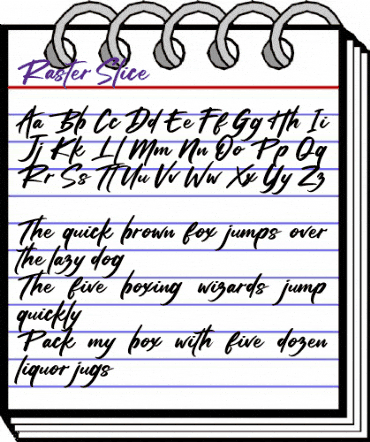 Raster Slice
Aa Bb Cc Dd Ee Ff Gg Hh Ii
Jj Kk Ll Mm Nn Oo Pp Qq
Rr Ss Tt Uu Vv Ww Xx Yy Zz
The quick brown fox jumps over
the lazy dog
The five boxing wizards jump
quickly
Pack my box with five dozen
liquor jugs